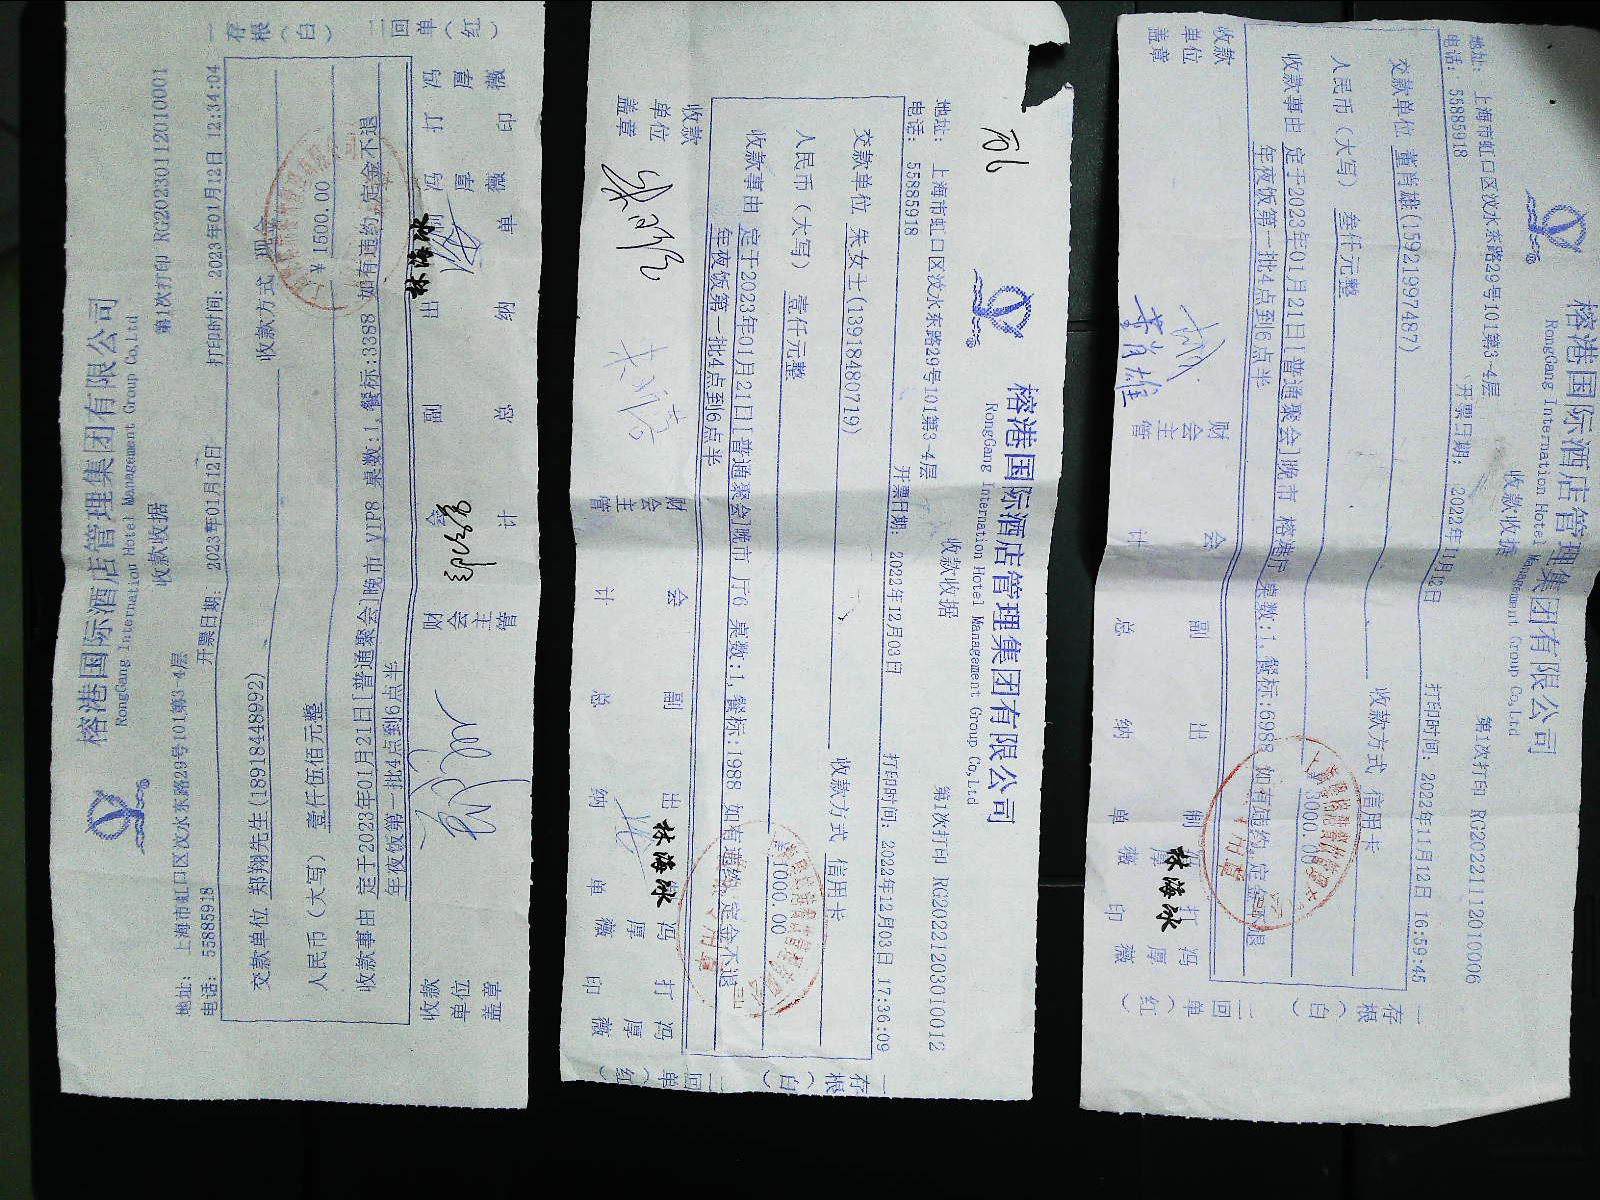 榕港国际酒店管理集团有限公司
RongGang International Hotel Management Group Co,Ltd
收款收据
第1次打印 RG20230112010001
地址： 上海市虹口区汶水东路29号101第3-4层
电话： 55885918
开票日期： 2023年01月12日
打印时间：2023年01月12日 12:34:04
交款单位 郑翔先生(18918448992)
收款方式 现金
人民币（大写） 壹仟伍佰元整
￥1500.00
收款事由 定于2023年01月21日[普通聚会]晚市 VIP8 桌数:1,餐标:3388 如有违约,定金不退
年夜饭第一批4点到6点半
一存根（白） 二回单（红）
收款单位盖章
财会主管
会计
副总
出纳
林海冰
制单
冯厚薇
打印
冯厚薇
榕港国际酒店管理集团有限公司
RongGang International Hotel Management Group Co,Ltd
收款收据
第1次打印 RG20221203010012
地址： 上海市虹口区汶水东路29号101第3-4层
电话： 55885918
开票日期： 2022年12月03日
打印时间：2022年12月03日 17:36:09
交款单位 朱女士(13918480719)
收款方式 信用卡
人民币（大写） 壹仟元整
1000.00
收款事由 定于2023年01月21日[普通聚会]晚市 厅6 桌数:1,餐标:1988 如有违约,定金不退
年夜饭第一批4点到6点半
一存根（白） 二回单（红）
收款单位盖章
财会主管
会计
副总
出纳
林海冰
单
冯厚薇
打印
冯厚薇
榕港国际酒店管理集团有限公司
RongGang International Hotel Management Group Co,Ltd
收款收据
第1次打印 RG20221112010006
地址： 上海市虹口区汶水东路29号101第3-4层
电话： 55885918
开票日期： 2022年11月12日
打印时间：2022年11月12日 16:59:45
交款单位 董肖雄(15921997487)
收款方式 信用卡
人民币（大写） 叁仟元整
3000.00
收款事由 定于2023年01月21日[普通聚会]晚市 榕港厅 桌数:1,餐标:6988 如有违约,定金不退
年夜饭第一批4点到6点半
一存根（白） 二回单（红）
收款单位盖章
董肖雄
财会主管
会计
副总
出纳
林海冰
制单
冯厚薇
打印
冯厚薇